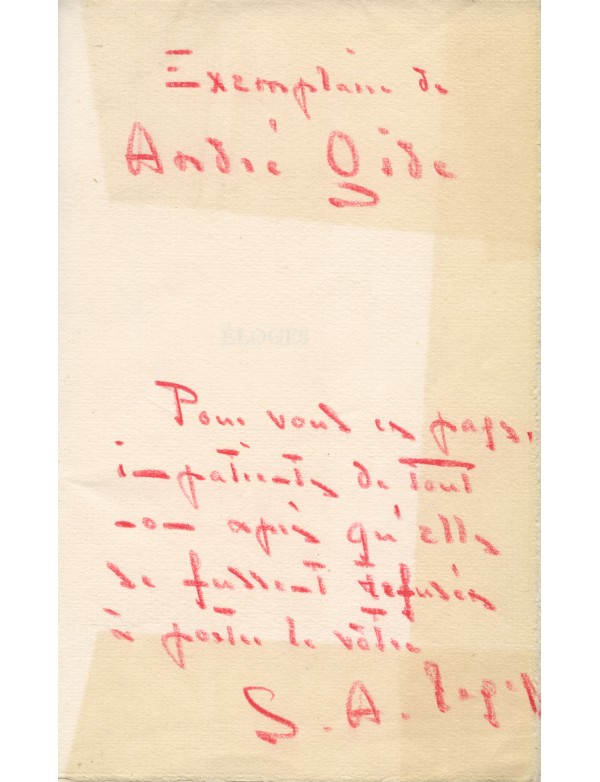 Exemplaire de
André Gide
ÉLOGES
Pour vous ces pages,
impatientes de tout
nom après qu'elles
se fussent refusées
à porter le vôtre
S. A. Leger